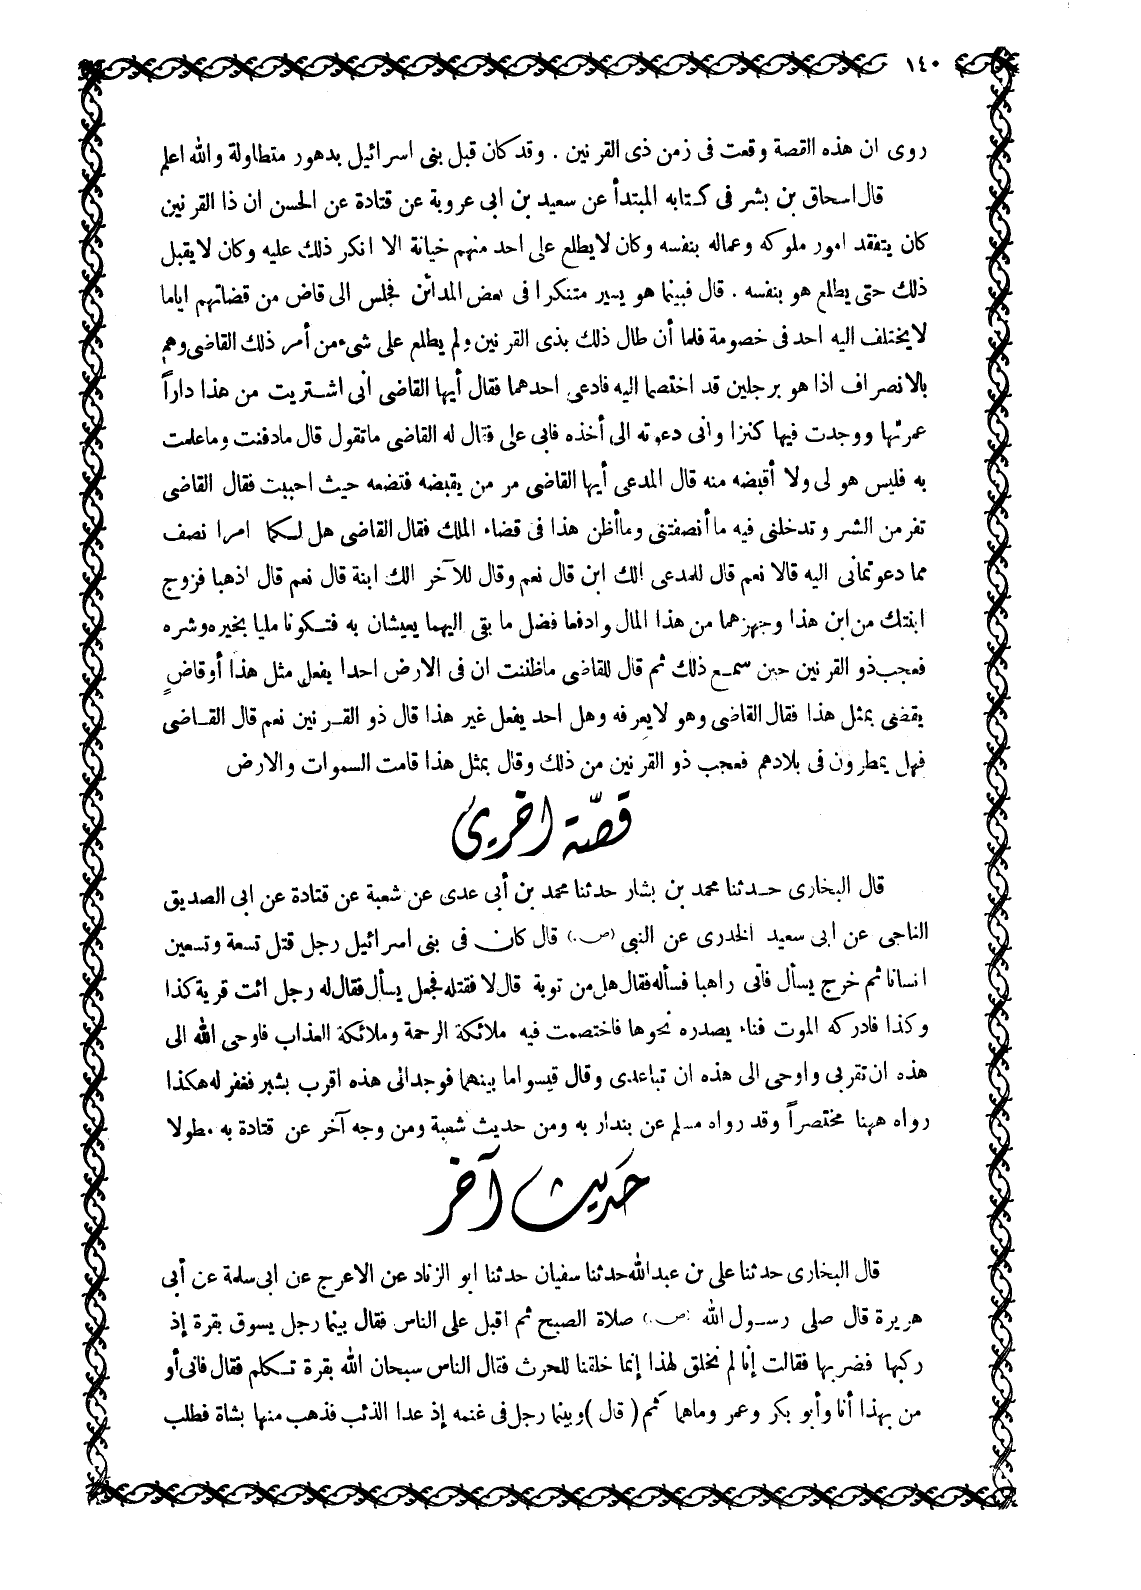 ١٤٠
روى ان هذه القصة وقعت فى زمن ذى القرنين . وقد كان قبل بنى اسرائيل بدهور متطاولة والله اعلم
قال اسحاق بن بشر فى كتابه المبتدأ عن سعيد بن ابى عروبة عن قتادة عن الحسن ان ذا القرنين
كان يتفقد امور ملوكه وعماله بنفسه وكان لا يطلع على احد منهم خيانة الا انكر ذلك عليه وكان لا يقبل
ذلك حتى يطلع هو بنفسه . قال فبينما هو يسير متنكرا فى بعض المدائن فجلس الى قاض من قضاتهم اياما
لا يختلف اليه احد فى خصومة فلما أن طال ذلك بذى القرنين ولم يطلع على شىء من أمر ذلك القاضى وهم
بالانصراف اذا هو برجلين قد اختصما اليه فادعى احدهما فقال أيها القاضى انى اشتريت من هذا داراً
عمرتها ووجدت فيها كنزا وانى دعوته الى أخذه فابى على فقال له القاضى ما تقول قال مادفنت وماعلمت
به فليس هو لى ولا أقبضه منه قال المدعى أيها القاضى مر من يقبضه فتضعه حيث احببت فقال القاضى
تفر من الشر وتدخلنى فيه ما أنصفتنى وما أظن هذا فى قضاء الملك فقال القاضى هل لكما امرا نصف
مما دعوتمانى اليه قالا نعم قال للمدعى الك ابن قال نعم وقال للآخر الك ابنة قال نعم قال اذهبا فزوج
ابنتك من ابن هذا وجهزهما من هذا المال وادفعا فضل ما بقى اليهما يعيشان به فتكونا مليا بخيره وشره
فعجب ذو القرنين حين سمع ذلك ثم قال للقاضى ماظننت ان فى الارض احدا يفعل مثل هذا أو قاضٍ
يقضى بمثل هذا فقال القاضى وهو لا يعرفه وهل احد يفعل غير هذا قال ذو القرنين نعم قال القاضى
فهل يمطرون فى بلادهم فعجب ذو القرنين من ذلك وقال بمثل هذا قامت السموات والارض
قصّة اخرى
قال البخارى حدثنا محمد بن بشار حدثنا محمد بن أبى عدى عن شعبة عن قتادة عن ابى الصديق
الناجى عن ابى سعيد الخدرى عن النبى (ص.) قال كان فى بنى اسرائيل رجل قتل تسعة وتسعين
انسانا ثم خرج يسأل فأتى راهبا فسأله فقال هل من توبة قال لا فقتله فجعل يسأل فقال له رجل ائت قرية كذا
وكذا فادركه الموت فناء بصدره نحوها فاختصمت فيه ملائكة الرحمة وملائكة العذاب فاوحى الله الى
هذه ان تقربى واوحى الى هذه ان تباعدى وقال قيسوا ما بينهما فوجد الى هذه اقرب بشبر فغفر له هكذا
رواه ههنا مختصراً وقد رواه مسلم عن بندار به ومن حديث شعبة ومن وجه آخر عن قتادة به مطولا
حديث آخر
قال البخارى حدثنا على بن عبد الله حدثنا سفيان حدثنا ابو الزناد عن الاعرج عن ابى سلمة عن أبى
هريرة قال صلى رسول الله (ص.) صلاة الصبح ثم اقبل على الناس فقال بينما رجل يسوق بقرة إذ
ركبها فضربها فقالت إنا لم نخلق لهذا إنما خلقنا للحرث فقال الناس سبحان الله بقرة تكلم فقال فانى أو
من بهذا أنا وأبو بكر وعمر وماهما ثم ( قال ) وبينما رجل فى غنمه إذ عدا الذئب فذهب منها بشاة فطلب